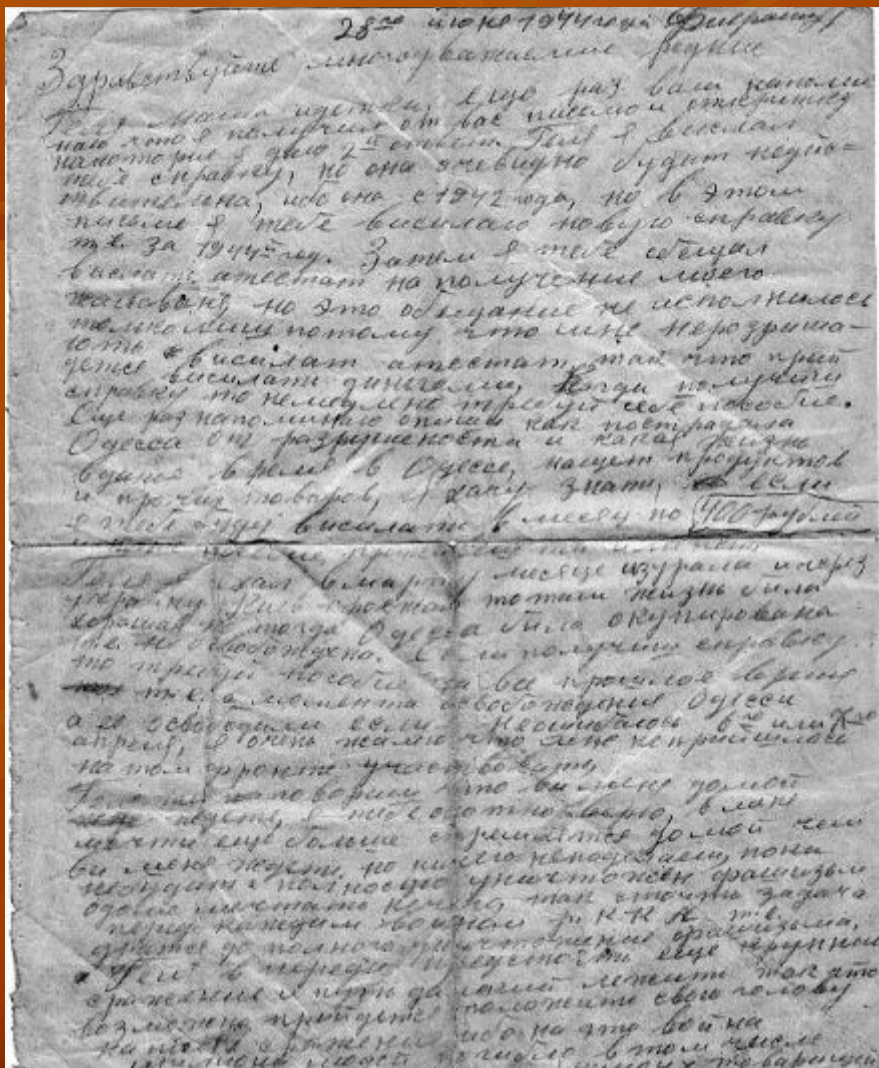 28го июне 1944 года
Здравствуйте многоуважаемие родние
Геля и детки, ещо раз вам напоми
наю что я получил от вас писмо и откритку
на которие я дал 2а ответи. Геля я вислал
тебе справку, но она очевидно будит недейс-
твителна, ибо она с 1942 года, но в этом
письме я тебе висилаю новую справку
т.е. за 1944й год. Затем я тебе обещал
вислать атестат на получение моего
но это обещание не исполнилось
потому что мне неразриша-
ють висилат атестат, так что прий
дется висилати денгами, Когда получити
справку то немедлено требуй себе пособие.
Еще раз напоминаю опиши как пострадала
Одесса от и какая жизнь
в даное время в Одессе, нащет продуктов
и прочих товаров, я хочу знати, если
я тебе буду висилати в месяц по 400 рублей
Геля я ехал в марте месяце изурала и через
Украину Киев проежал то там жизнь била
хорошая но тогда Одесса била окупирована
т.е. не освобождена. Если получиш справку
то требуй пособие за все прошлое время
т.е. с момента освобождения Одесси
а ее освободили если неошибаюсь или
апреля, я очень жалею что мне не прийшлось
на том фронте участвовать
Геля ти говориш что ви мене домой
ждете, я тебе охотно верю, в мене
мечти ещё больше стремятся домой чем
ви мене ждети, но ничего неподелаем, пока
небудит полностю уничтожен фашизм
о доме мечтать нечего, так стоить задача
перед каждим воином Р.К.К.А. т.е.
драться до полного уничтожения фашизьма,
Геля в переди предстоять еще крупние
сражение и путь далокий лежить так что
возможно прийдется положить свою голову
на поле сражения, ибо на это война
людей погибло в том числе
товарищей